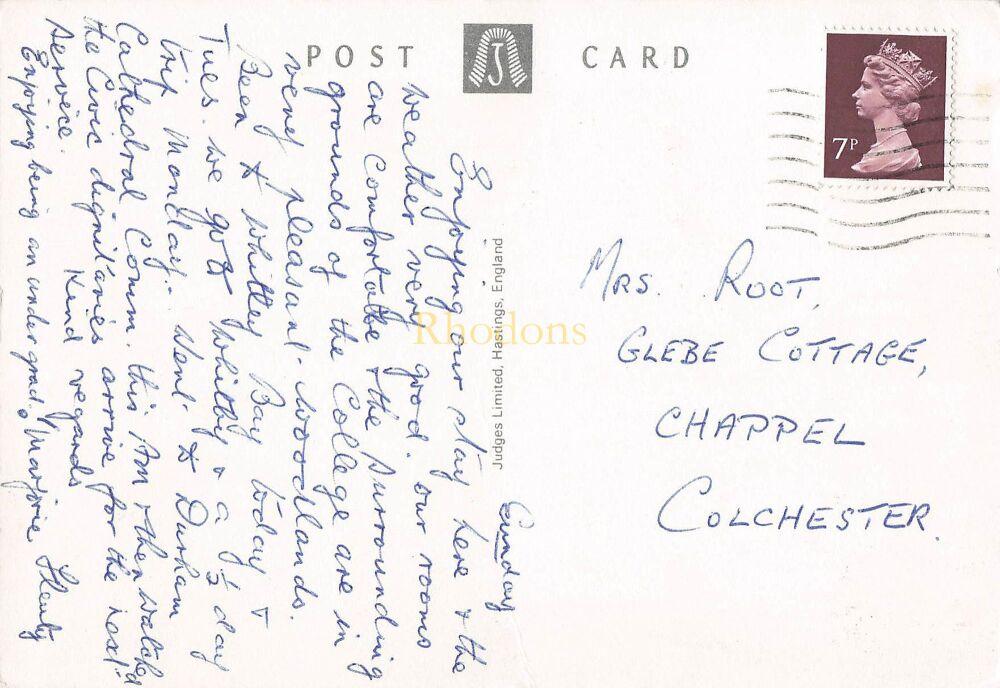 POST CARD
J
7P
Sunday
Enjoying our stay here & the
weather very good. our rooms
are comfortable & the surrounding
grounds of the College are in
very pleasant woodlands.
Been to Whitley Bay today &
Tues. we go to Whitby & a ½ day
trip Monday. Went to Durham
Cathedral Comm. this Am & then watched
the Civic dignitaries arrive for the next
service. Kind regards
Enjoying being an undergrad! Marjorie
Judges Limited, Hastings, England
Rhodons
MRS. ROOT,
GLEBE COTTAGE,
CHAPPEL
COLCHESTER.